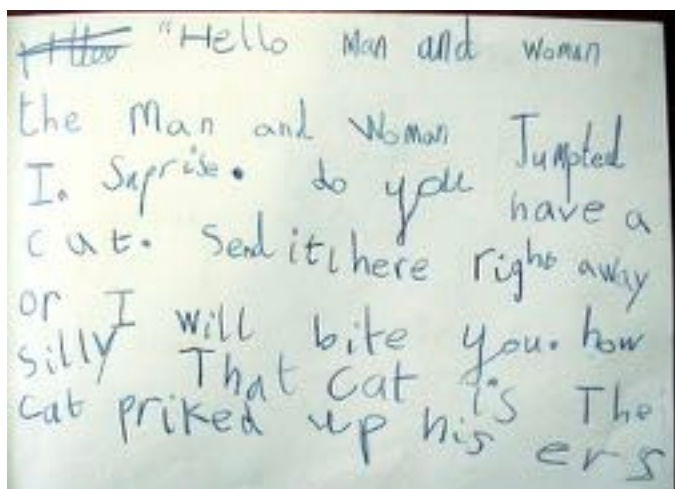 "Hello Man and Woman
the Man and Woman Jumpted
I. Suprise. do you have a
cat. Send it here right away
or I will bite you. how
silly That cat is The
cat priked up his ers